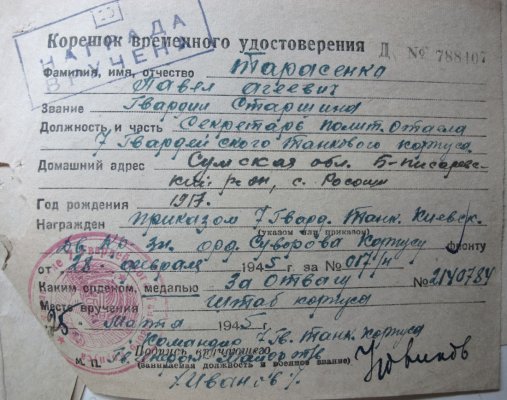 НАГРАДА
ВРУЧЕНА
Корешок временного удостоверения Д № 788407
Фамилия, имя, отчество Тарасенко
Павел Агеевич
Звание Гвардии Старшина
Должность и часть Секретарь полит.отдела
7 Гвардейского танкового корпуса
Домашний адрес Сумская обл. Б-писарев-
ский р-он, с. Росоши
Год рождения 1917.
Награжден приказом 7 Гвард. Танк. Киевск.
(указом или приказом)
орд. Суворова Корпусу фронту
от 28 февраля 1945 г за № 017/н
Каким орденом, медалью За Отвагу № 2140784
Место вручения Штаб корпуса
25 Марта 1945 г.
Командир 7 Гв. танк. корпуса
М. П. Подпись вручающего
Гв. майор т/в
(занимаемая должность и военное звание)
/Иванов/.
Новиков